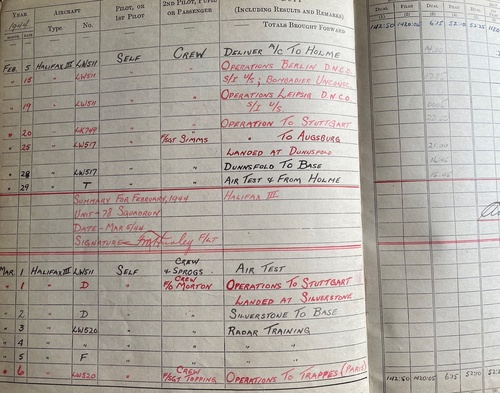 YEAR AIRCRAFT PILOT, OR 2ND PILOT, PUPIL DUTY
1944 Type No. 1ST PILOT OR PASSENGER (INCLUDING RESULTS AND REMARKS)
TOTALS BROUGHT FORWARD
FEB. 5 HALIFAX III LW511 SELF CREW DELIVER A/C TO HOLME
" 15 " LW511 " " OPERATIONS BERLIN D.N.C.O.
S/I U/S; BOMBADIER UNCONSC.
" 19 " LW511 " " OPERATIONS LEIPSIG D.N.C.O.
S/I U/S.
" 20 " LK749 " " OPERATION TO STUTTGART
" 25 " LW517 " F/SGT SIMMS " TO AUGSBURG
LANDED AT DUNNSFOLD
" 28 " LW517 " " DUNNSFOLD TO BASE
" 29 " T " " AIR TEST & FROM HOLME
SUMMARY FOR FEBRUARY, 1944 HALIFAX III
UNIT - 78 SQUADRON
DATE - MAR 5/44
SIGNATURE F/LT
MAR. 1 HALIFAX III LW511 SELF CREW & SPROGS AIR TEST
" 1 " D " CREW F/O MORTON OPERATIONS TO STUTTGART
LANDED AT SILVERSTONE
" 2 " D " " SILVERSTONE TO BASE
" 3 " LW520 " " RADAR TRAINING
" 4 " " " " " "
" 5 " F " " " "
" 6 " LW520 " CREW F/SGT TOPPING OPERATIONS TO TRAPPES (PARIS)
DUAL PILOT DUAL PILOT DUAL
(1) (2) (3) (4) (5)
142:50 1420:05 6:15 52:10
142:50 1420:05 6:15 52:10